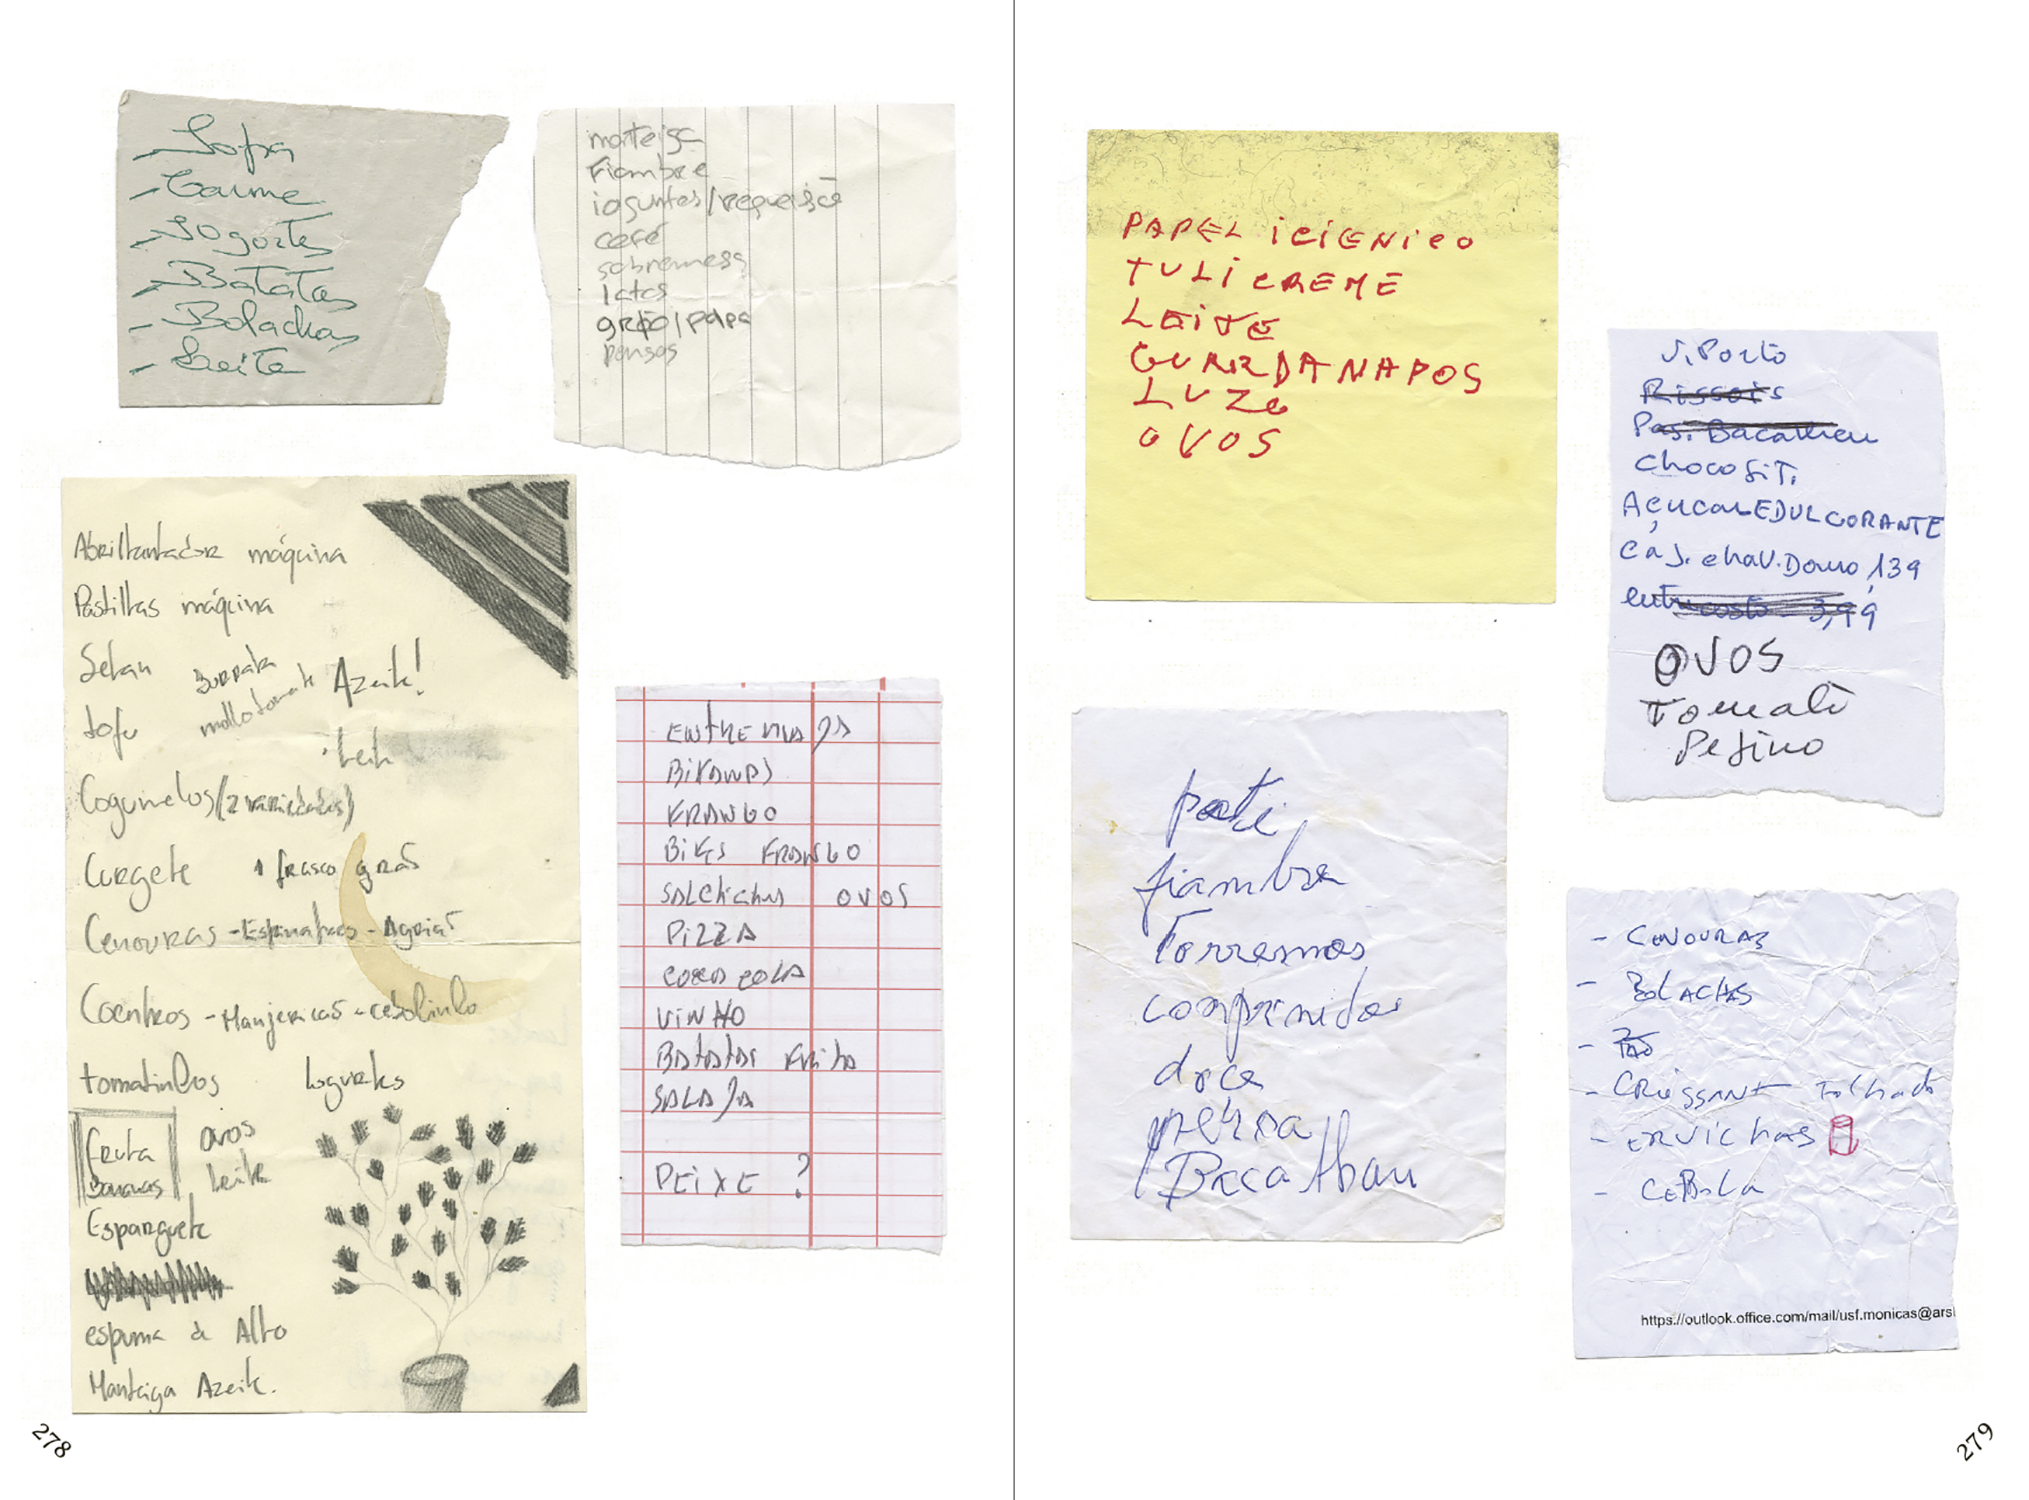 - Sopa
- Carne
- Iogortes
- Batatas
- Bolachas
- Leite
manteiga
Fiambre
iogurtes/requeijão
café
sobremesa
latas
grão/papa
pensos
Abrilhantador máquina
Pastilhas máquina
Seitan Burrata Azeite!
tofu molho tomate
Leite
Cogumelos (2 variedades)
Curgete 1 frasco grão
Cenouras - Espinafres - Agrião
Coentros - Manjericão - cebolinho
tomatinhos Iogurtes
fruta ovos
Bananas leite
Esparguete
espuma de Alho
Manteiga Azeite.
ENTREMIADA
BIFANAS
FRANGO
BIFES FRANGO
SALCICHAS OVOS
PIZZA
COCA COLA
VINHO
BATATAS FRITA
SALADA
PEIXE ?
278
PAPEL iGiENiCO
TULiCREME
LEiTE
GURRDANAPOS
LUZO
OVOS
V. Porto
Rissois
Pas. Bacalheu
Choco
AçucarEDULCORANTE
1,39
entrecosto 3,99
OVOS
Tomate
Pepino
pate
fiambre
Torresmos
comprimidos
doce
Bacalhau
- CENOURAS
- BOLACHAS
- PÃO
- CROISSANT Folhado
- ERVILHAS
- CEBOLA
https://outlook.office.com/mail/usf.monicas@ars
279